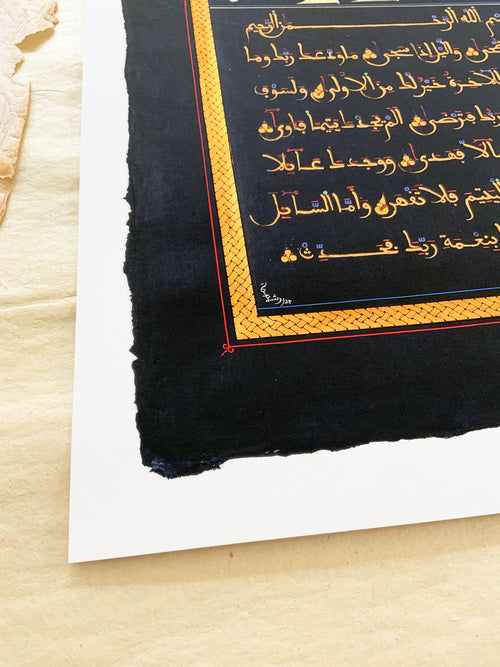 الله الرحمن الرحيم
واليل إذا سجى ما ودعك ربك وما
للاخرة خير لك من الاولى ولسوف
فترضى ألم يجدك يتيما فاوى
ضالا فهدى ووجدك عائلا
اليتيم فلا تقهر وأما السائل
بنعمة ربك فحدث